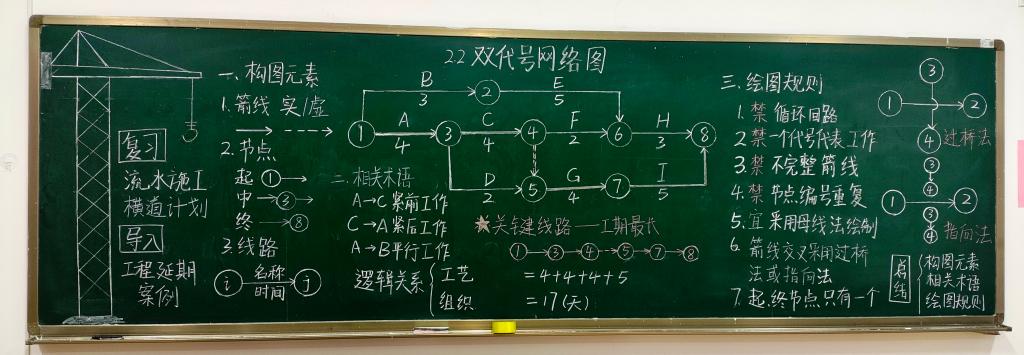 2.2 双代号网络图
复习
流水施工
横道计划
导入
工程延期
案例
一、构图元素
1.箭线 实/虚
2.节点
起 ①
中 ③
终 ⑧
3.线路
i 名称 j
时间
① ② ③ ④ ⑤ ⑥ ⑦ ⑧
B
3
E
5
A
4
C
4
F
2
H
3
D
2
G
4
I
5
二、相关术语
A→C 紧前工作
C→A 紧后工作
A→B 平行工作
逻辑关系 { 工艺
组织
★关键线路——工期最长
①→③→④→⑤→⑦→⑧
=4+4+4+5
=17(天)
三、绘图规则
1.禁 循环回路
2.禁 一个代号代表工作
3.禁 不完整箭线
4.禁 节点编号重复
5.宜 采用母线法绘制
6.箭线交叉采用过桥
法或指向法
7.起、终节点只有一个
③
① ②
④ 过桥法
③
④
① ②
③
④ 指向法
总结
构图元素
相关术语
绘图规则